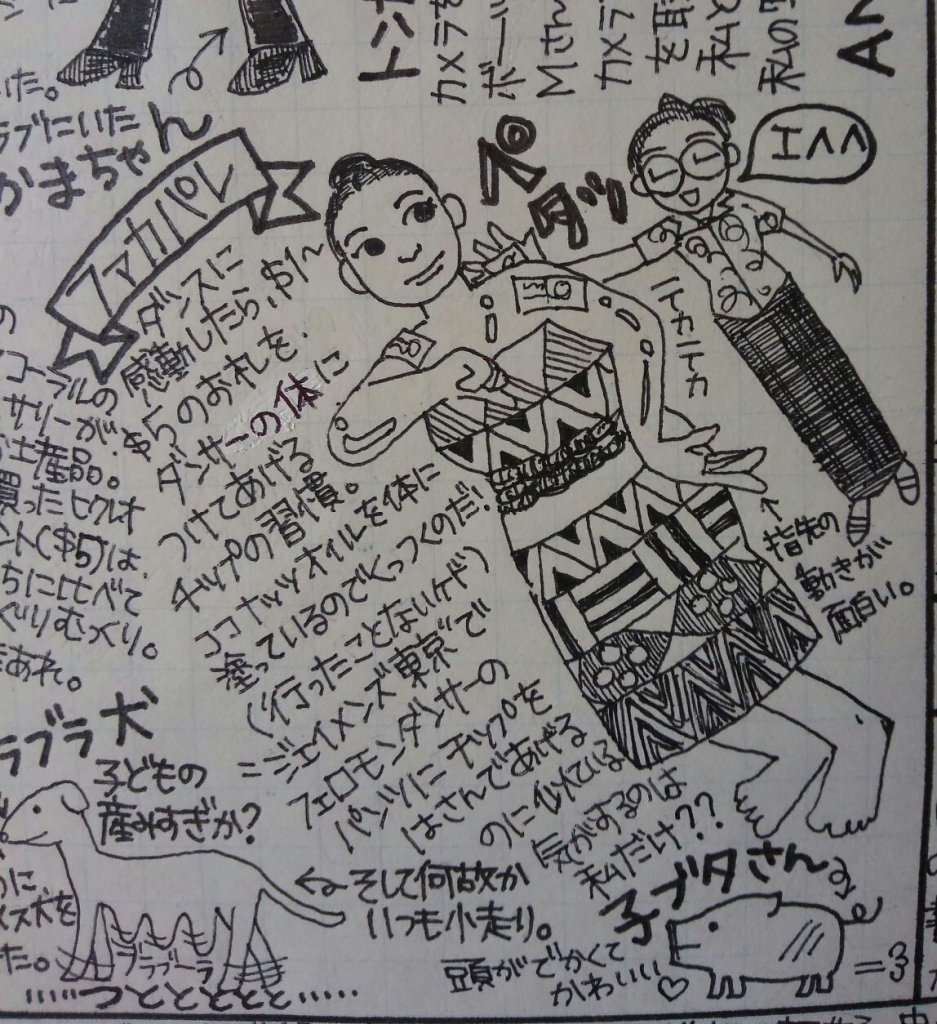 いた。
ラブにいた
かまちゃん
トンガ
カメラを
ボー
Mさん
カメラ
を取
私と
私の
AN
ファカパレ
ダンスに
感動したら、$1～
$5のお札を、
ダンサーの体に
つけてあげる
チップの習慣。
ココナッツオイルを体に
塗っているのでくっつくのだ!
(行ったことないケド)
ニジェイメンズ東京で
フェロモンダンサーの
パンツにチップを
はさんであげる
のに似ている
気がするのは
私だけ??
ペ
タッ
エヘヘ
ニトカニトカ
指先の
動きが
面白い。
の
コーラルの
サリーが
お土産品。
買ったヒクレオ
ント($5)は、
ちに比べて
ぐりむっくり。
まあれ。
ラブラ犬
子どもの
産みすぎか?
に
メス犬を
た。
ブラブーラ
つとととととと……
そして何故か
いつも小走り。
子ブタさん
頭がでかくて
かわいい♡
=3